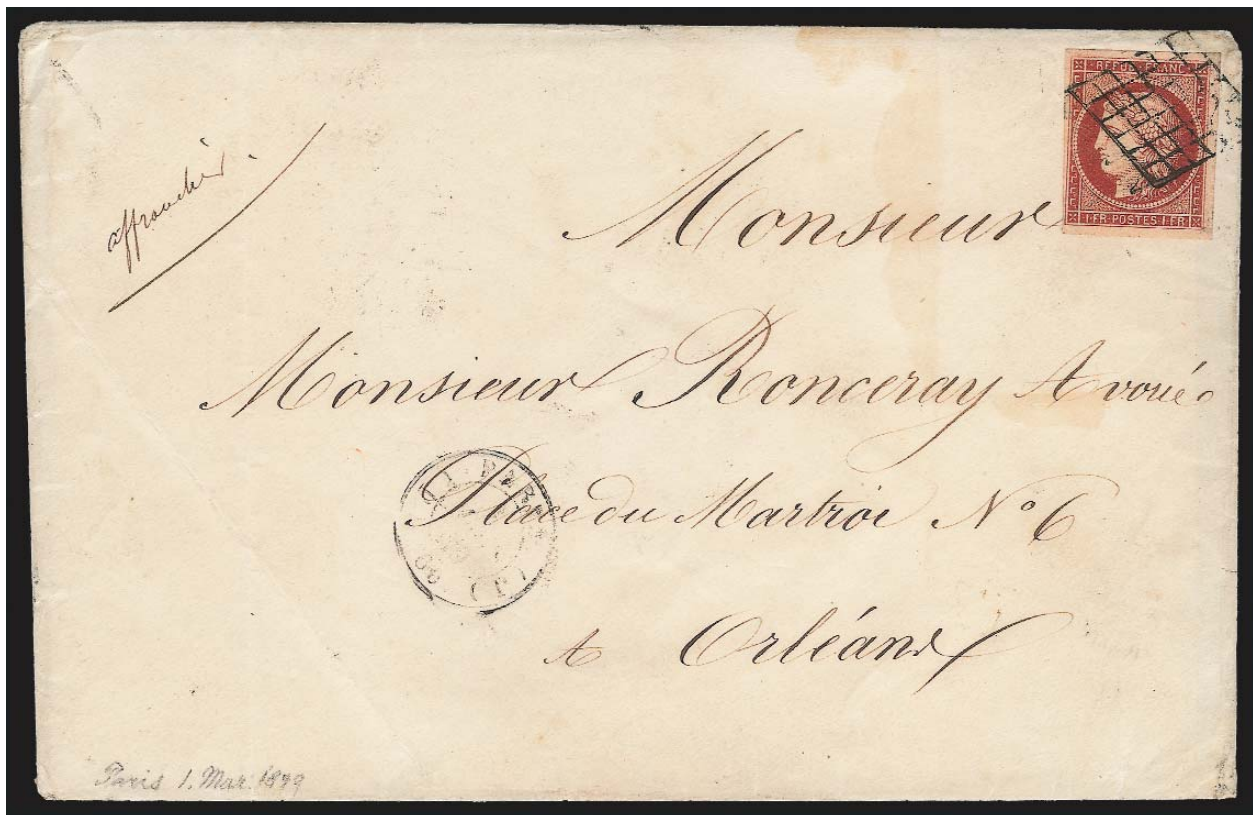 REPUB. FRANC.
1. FR. POSTES 1. FR
affranchie
Monsieur
Monsieur Ronceray Avoué
Place du Martroi N° 6
A Orléans
PARIS
(60)
Paris 1. Mar. 1849